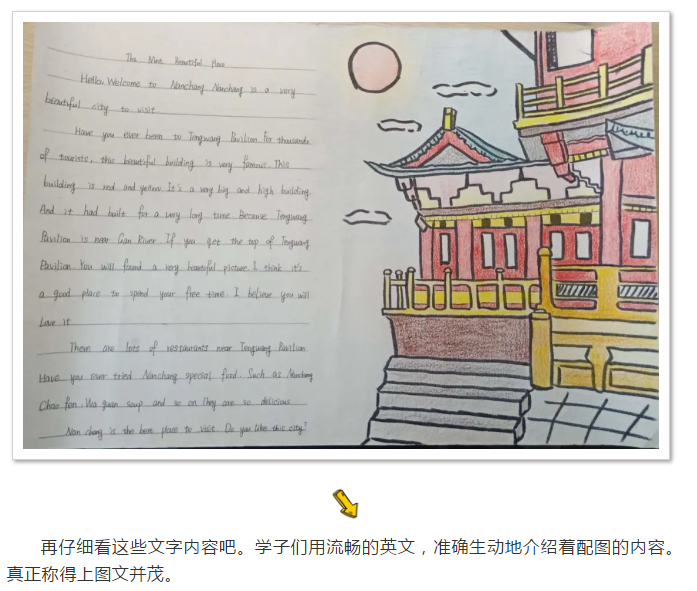 The Most Beautiful Place
Hello, Welcome to Nanchang Nanchang is a very
beautiful city to visit
Have you ever been to Tengwang Pavilion For thousands
of tourists, this beautiful building is very famous. This
building is red and yellow. It's a very big and high building.
And it had built for a very long time Because Tengwang
Pavilion is near Gan River If you get the top of Tengwang
Pavilion You will found a very beautiful picture I think it's
a good place to spend your free time I believe you will
love it
There are lots of restaurants near Tengwang Pavilion
Have you ever tried Nanchang special food. Such as Nanchang
Chao fen. Wa guan soup and so on They are so delicious
Nan chang is the best place to visit Do you like this city?
再仔细看这些文字内容吧。学子们用流畅的英文，准确生动地介绍着配图的内容。
真正称得上图文并茂。